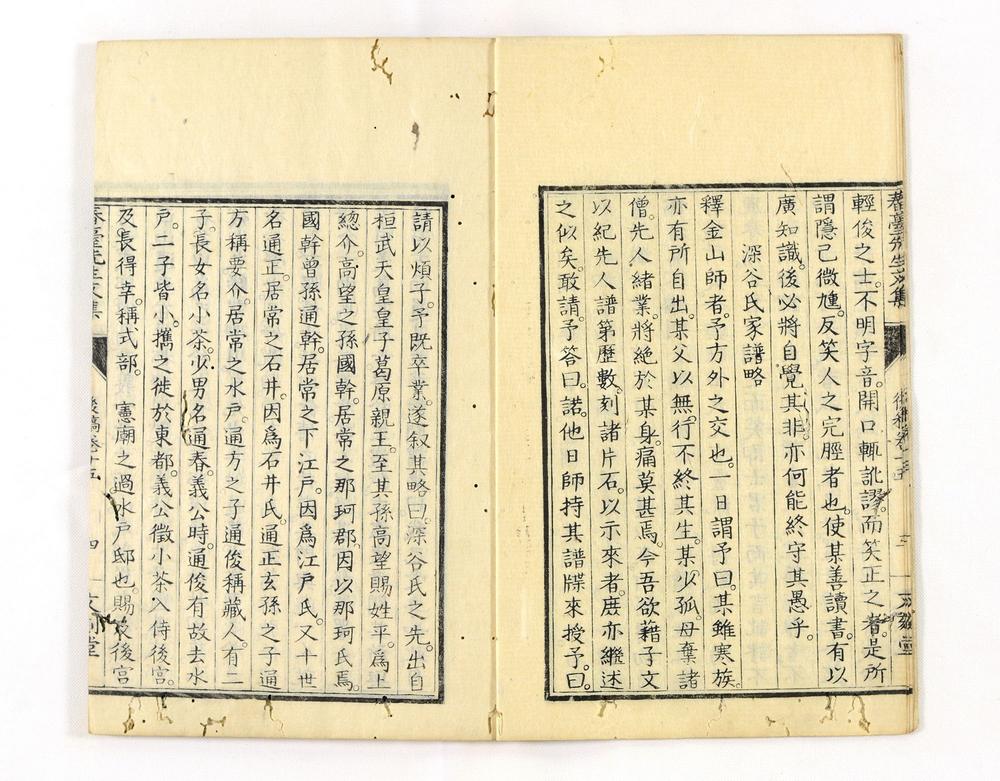 春臺先生文集
輕俊之士。不明字音。開口輒訛謬。而笑正之者。是所
謂隱己微尰。反笑人之完脛者也。使某善讀書。有以
廣知識。後必將自覺其非。亦何能終守其愚乎。
深谷氏家譜略
釋金山師者。予方外之交也。一日謂予曰。某雖寒族。
亦有所自出。某父以無行不終其生。某少孤。母棄諸
僧。先人緒業。將絕於某身。痛莫甚焉。今吾欲藉子文
以紀先人譜第歷數。刻諸片石。以示來者。庶亦繼述
之似矣。敢請。予答曰。諾。他日師持其譜牒來授予。曰。
請以煩子。予既卒業。遂叙其略曰。深谷氏之先。出自
桓武天皇皇子葛原親王。至其孫高望賜姓平。爲上
總介。高望之孫國幹。居常之那珂郡。因以那珂氏焉。
國幹曾孫通幹。居常之下江戶。因爲江戶氏。又十世
名通正。居常之石井。因爲石井氏。通正玄孫之子通
方稱要介。居常之水戶。通方之子通俊稱藏人。有二
子。長女名小茶。少男名通春。義公時。通俊有故去水
戶。二子皆小。攜之徙於東都。義公徵小茶入侍後宮。
及長得幸。稱式部。憲廟之過水戶邸也。賜衣後宮
春臺先生文集
後稿卷十五
四